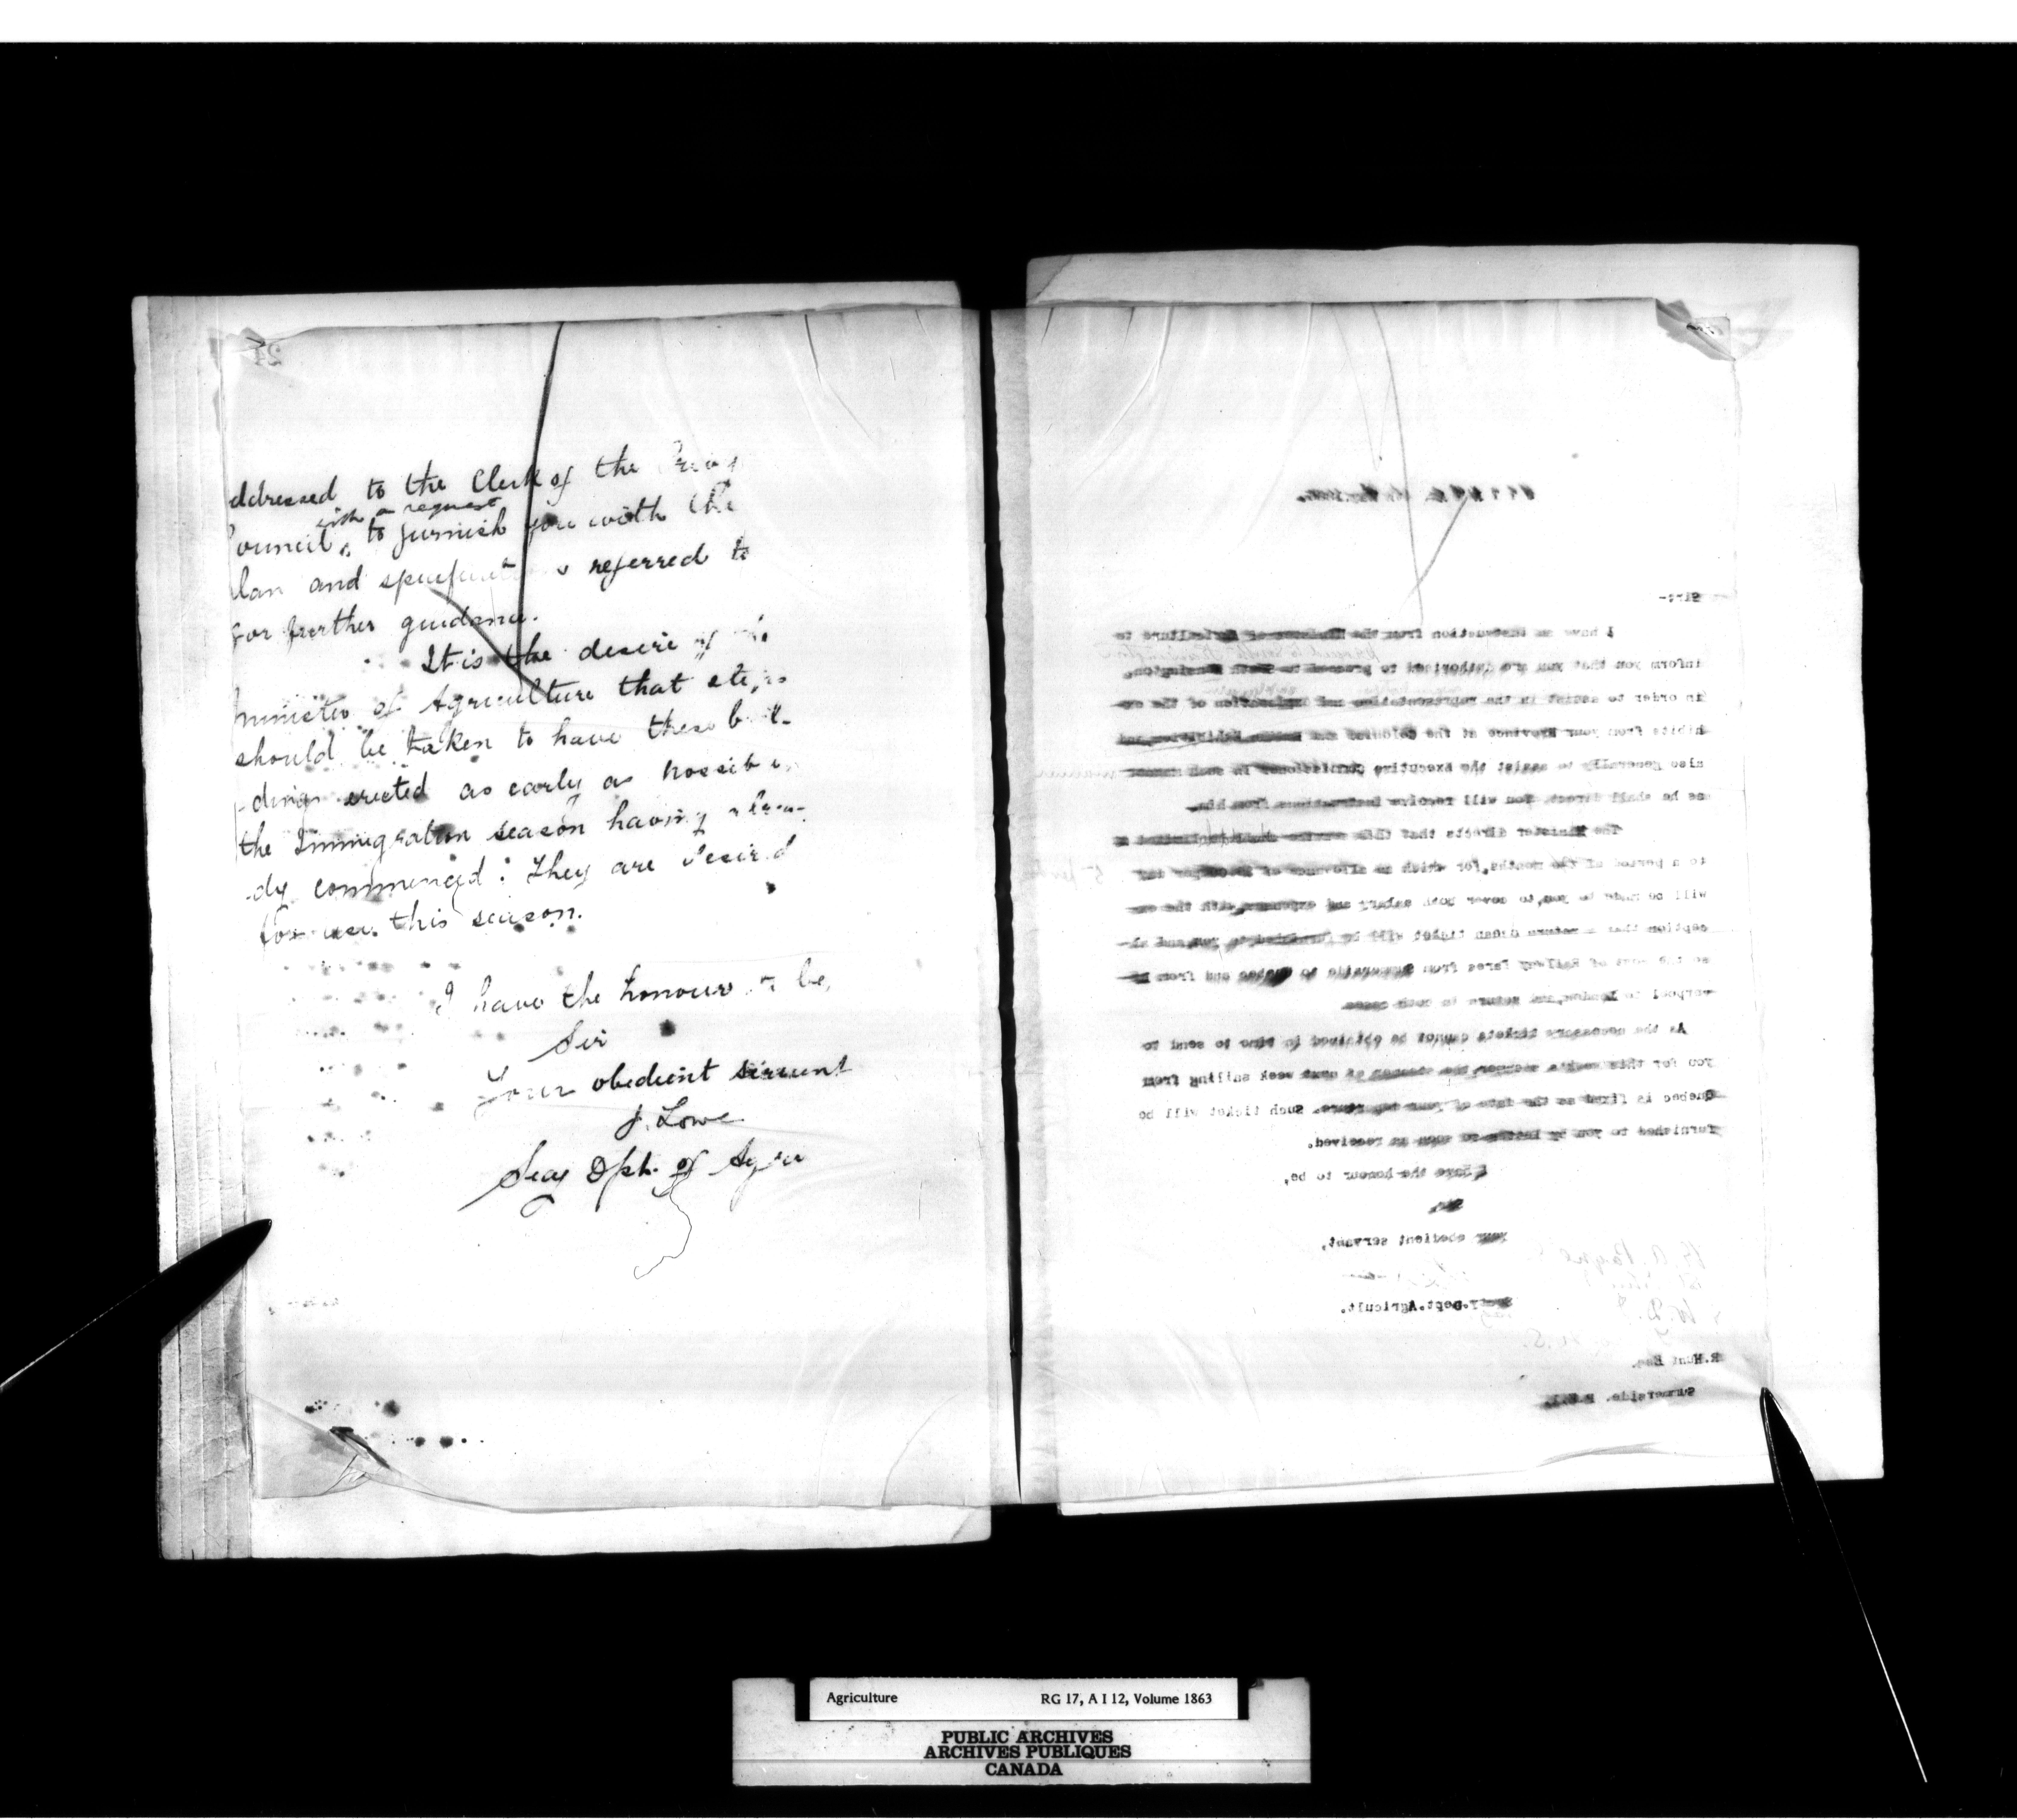 addressed to the Clerk of the Privy
Council, with a request to furnish you with the
plan and specifications referred to
for further guidance.
It is the desire of the
Minister of Agriculture that steps
should be taken to have these buil-
dings erected as early as possible,
the Immigration season having alrea-
dy commenced: They are desired
for use this season.
I have the honour to be,
Sir
Your obedient servant
J. Lowe
Secy Dpt. of Agric
Sir:-
I have an instruction from the Minister of Agriculture to
inform you that you are authorised to proceed to South Kensington,
in order to assist in the representation and explanation of the ex-
hibits from your Province at the Colonial and Indian Exhibition and
also generally to assist the Executive Commissioner in such manner
as he shall direct. You will receive instructions from him.
The Minister directs that this service shall be limited
to a period of six months, for which an allowance of per day
will be made to you, to cover both salary and expenses, with the ex-
ception that a return Ocean ticket will be furnished to you and al-
so the cost of Railway fares from Summerside to Quebec and from Li-
verpool to London, and return in each case.
As the necessary tickets cannot be obtained in time to send to
you for this week's steamer, the steamer of next week sailing from
Quebec is fixed as the date of your departure. Such ticket will be
furnished to you by letter so soon as received.
I have the honour to be,
Sir,
your obedient servant,
Secty. Dept. Agricult.
R. Hunt Esq.
Summerside. P.E.I.
Agriculture RG 17, A I 12, Volume 1863
PUBLIC ARCHIVES
ARCHIVES PUBLIQUES
CANADA